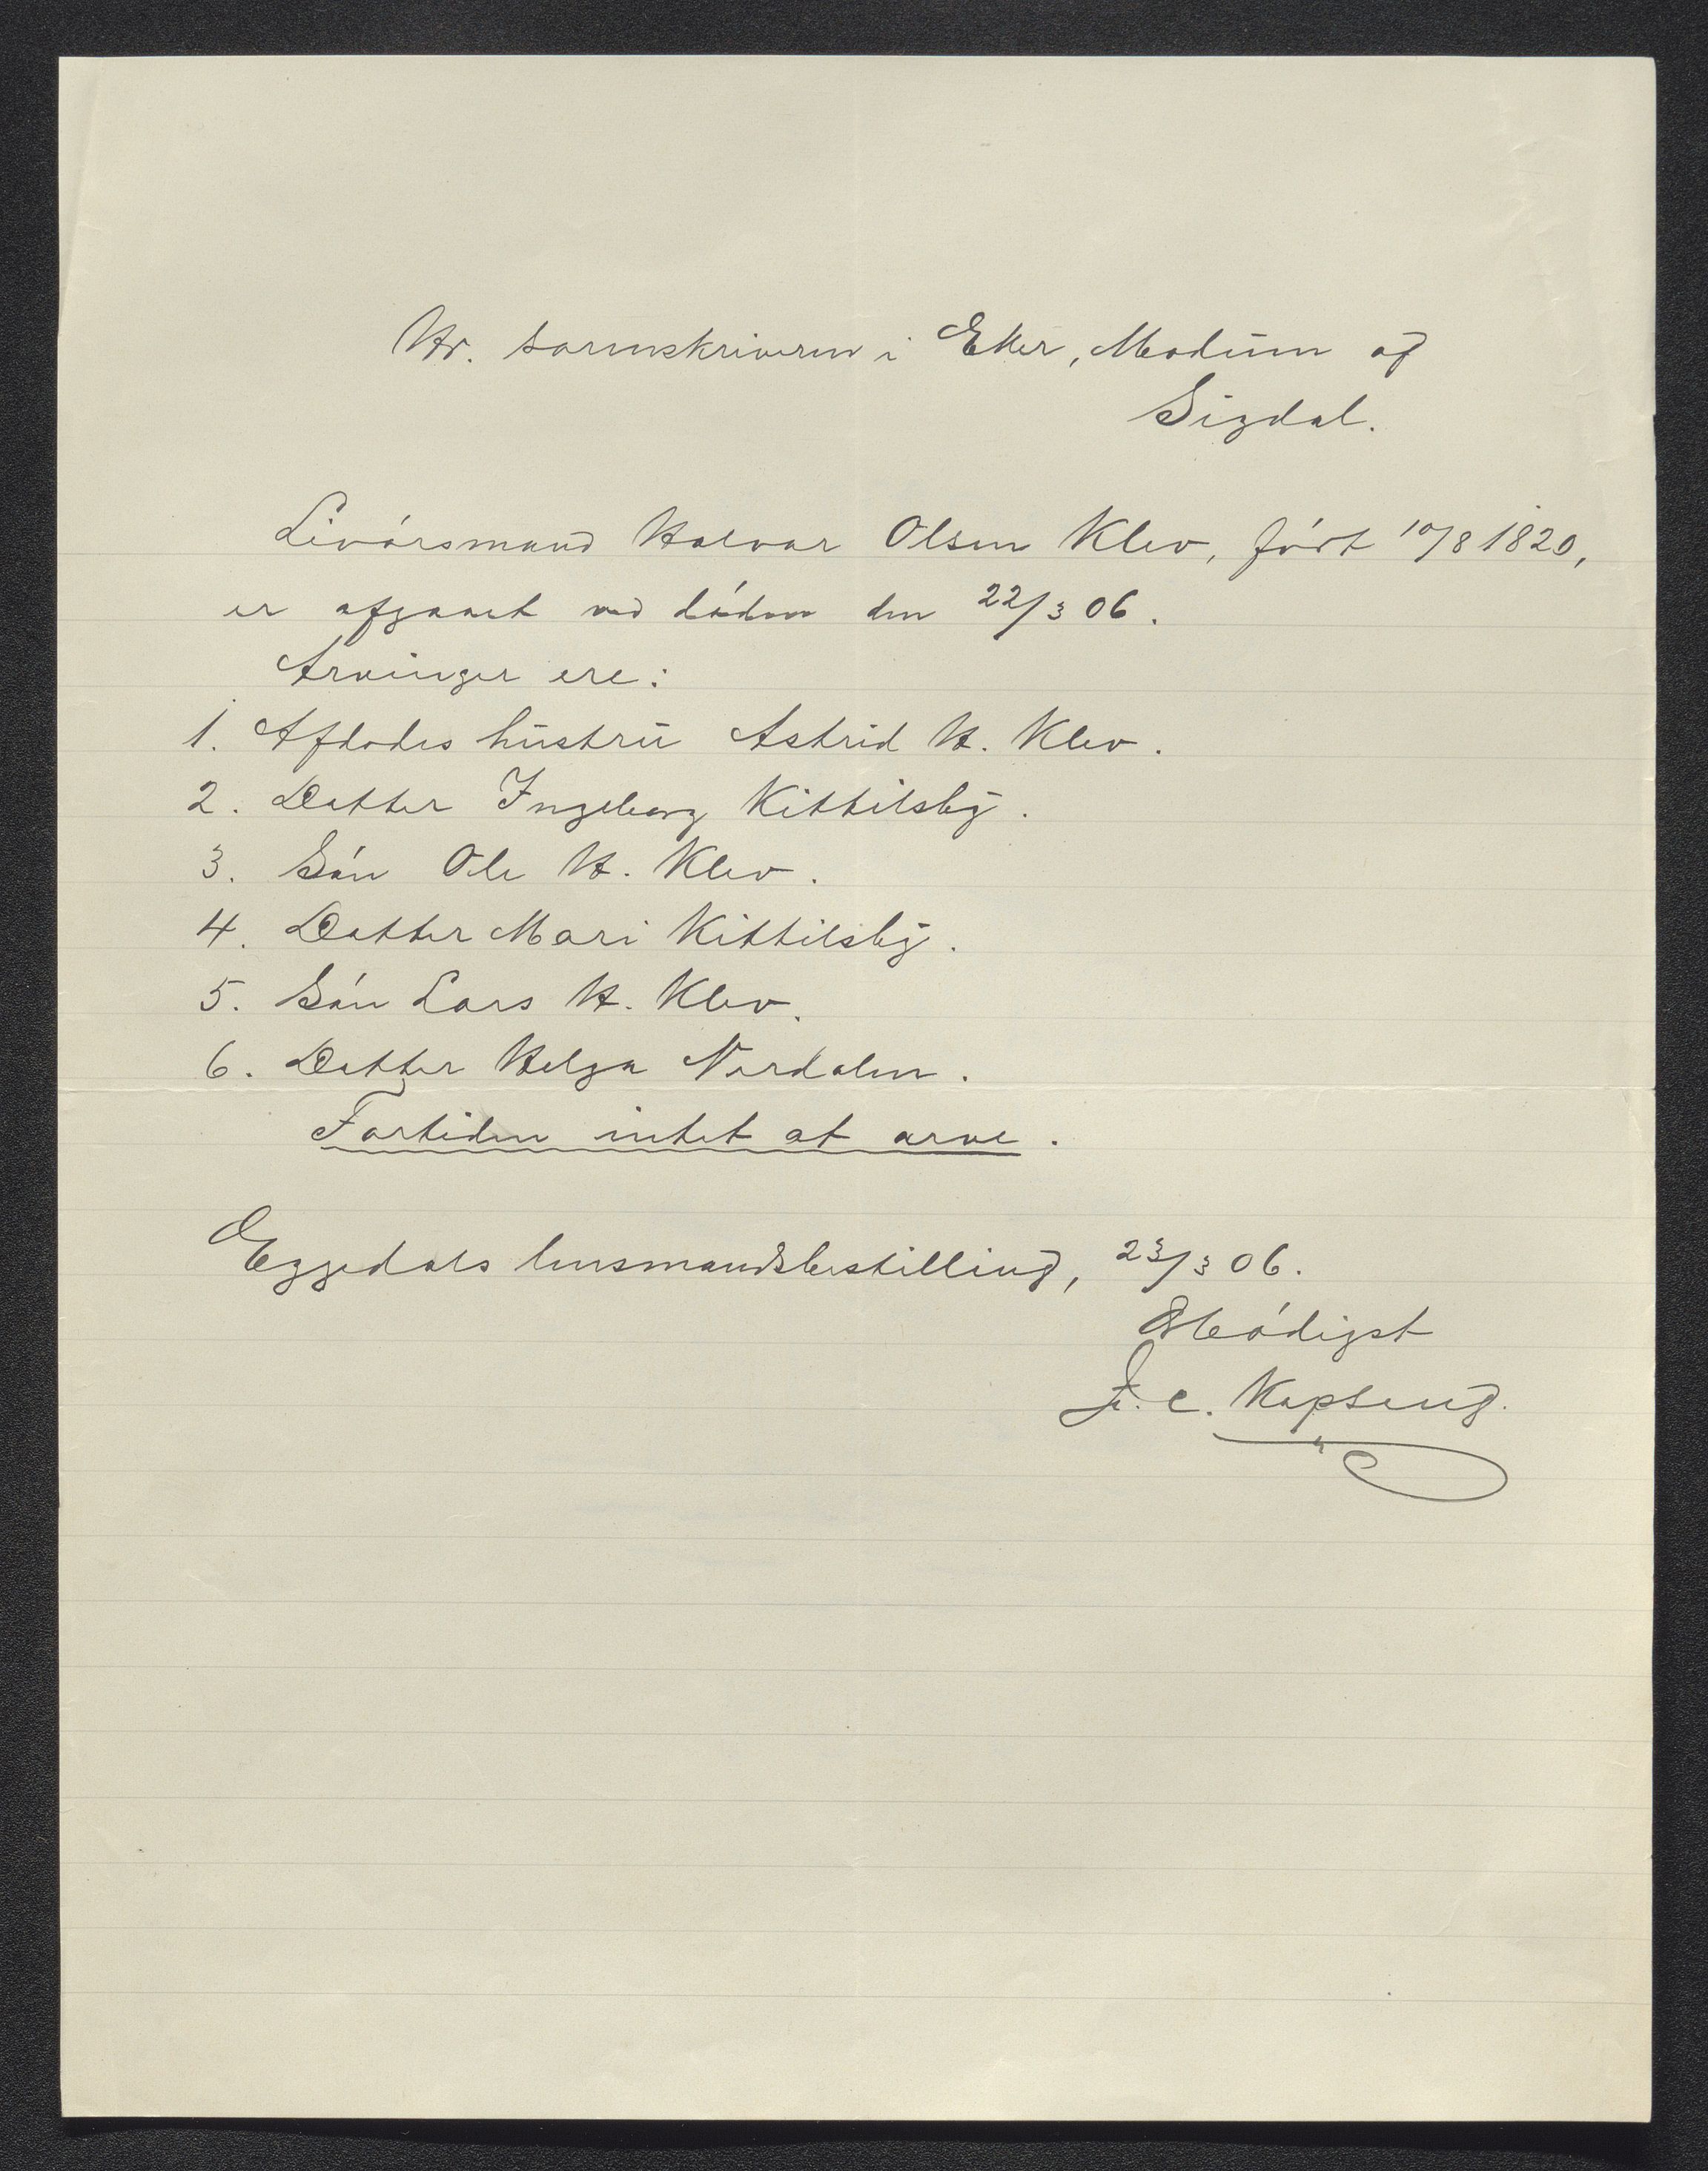 Hr. sorenskriveren i Eker, Modum og
Sigdal.
Livørsmand Halvor Olsen Klev, født 10/8 1820,
er afgaaet ved døden den 22/3 06.
Arvinger ere:
1. Afdødes hustru Astrid H. Klev.
2. Datter Ingeborg Kittilsby.
3. Søn Ole H. Klev.
4. Datter Mari Kittilsby.
5. Søn Lars H. Klev.
6. Datter Helga Nordalen.
Fortiden intet at arve.
Eggedals lensmandsbestilling, 23/3 06.
Ærbødigst
J. C. Kopseng.